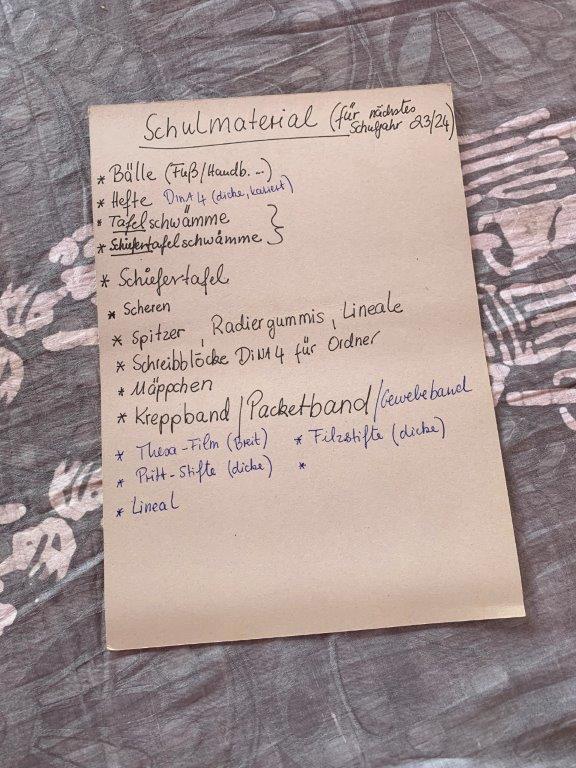 Schulmaterial (für nächstes
Schuljahr 23/24)
* Bälle (Fuß/Handb. ...)
* Hefte DinA4 (dicke, kariert)
* Tafelschwämme }
* Schiefertafelschwämme
* Schiefertafel
* Scheren
* Spitzer, Radiergummis, Lineale
* Schreibblöcke DiNA4 für Ordner
* Mäppchen
* Kreppband / Packetband / Gewebeband
* Thesa-Film (breit) * Filzstifte (dicke)
* Pritt-Stifte (dicke) *
* Lineal